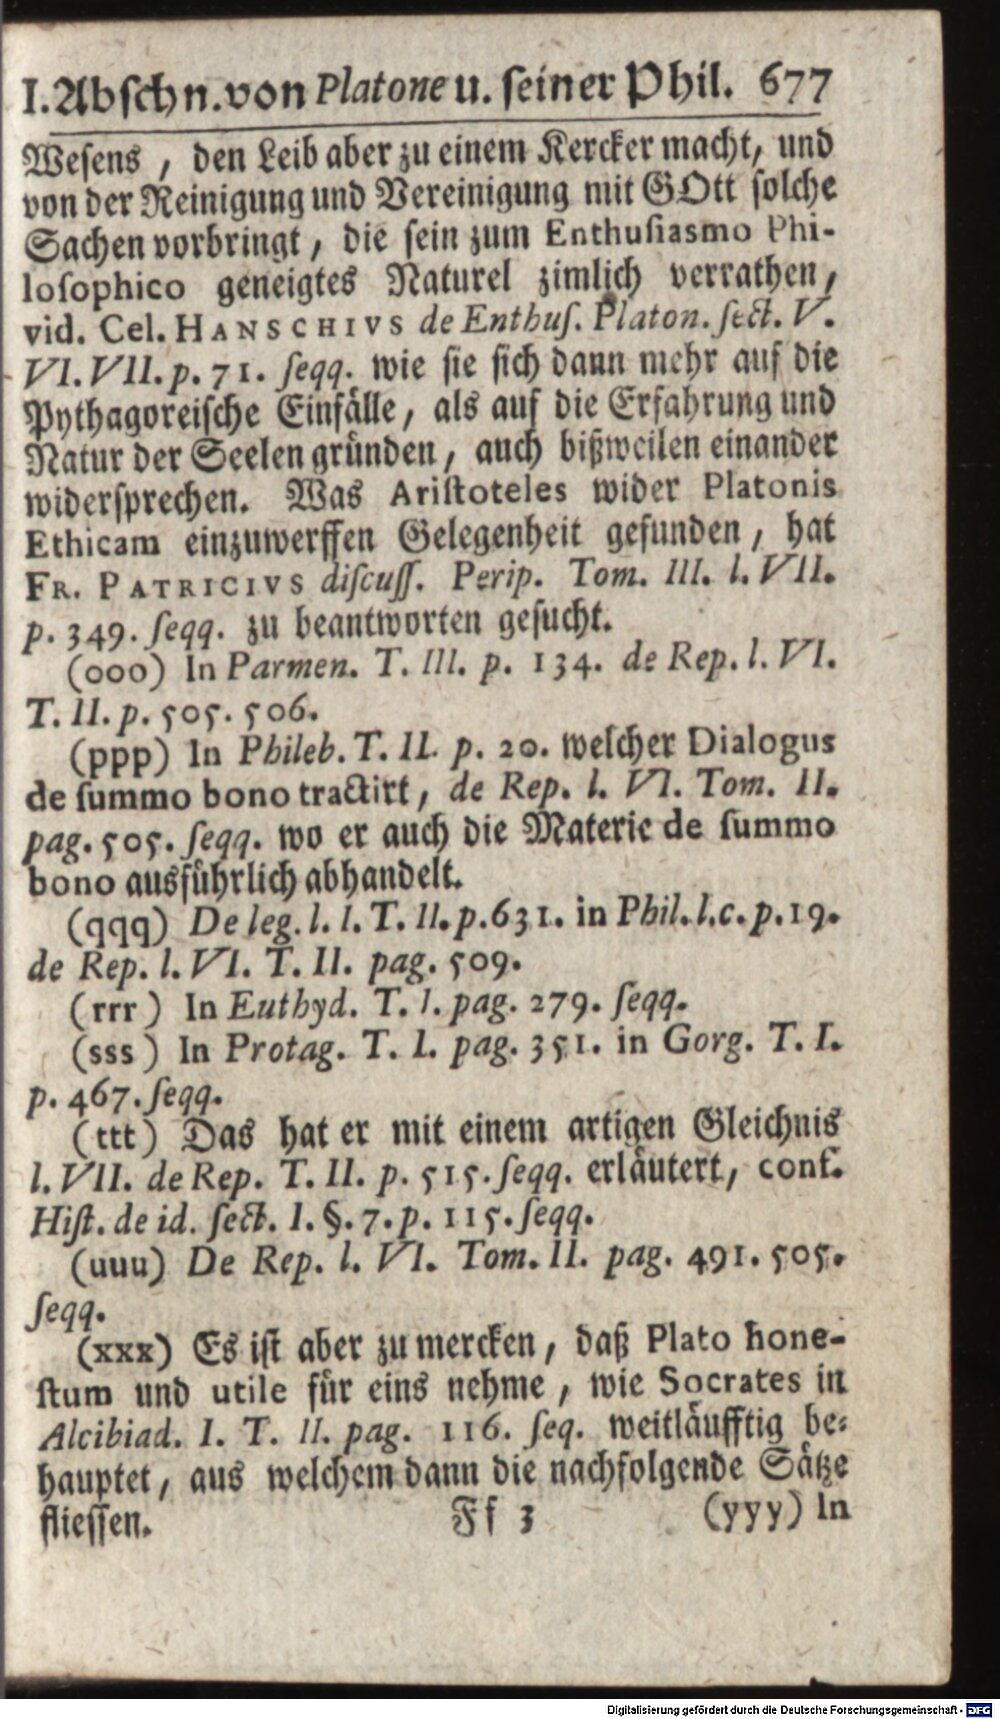 I. Abschn. von Platone u. seiner Phil. 677
Wesens, den Leib aber zu einem Kercker macht, und
von der Reinigung und Vereinigung mit GOtt solche
Sachen vorbringt, die sein zum Enthusiasmo Phi-
losophico geneigtes Naturel zimlich verrathen,
vid. Cel. HANSCHIVS de Enthus. Platon. sect. V.
VI. VII. p. 71. seqq. wie sie sich dann mehr auf die
Pythagoreische Einfälle, als auf die Erfahrung und
Natur der Seelen gründen, auch bißweilen einander
widersprechen. Was Aristoteles wider Platonis
Ethicam einzuwerffen Gelegenheit gefunden, hat
FR. PATRICIVS discuss. Perip. Tom. III. l. VII.
p. 349. seqq. zu beantworten gesucht.
(ooo) In Parmen. T. III. p. 134. de Rep. l. VI.
T. II. p. 505. 506.
(ppp) In Phileb. T. II. p. 20. welcher Dialogus
de summo bono tractirt, de Rep. l. VI. Tom. II.
pag. 505. seqq. wo er auch die Materie de summo
bono ausführlich abhandelt.
(qqq) De leg. l. I. T. II. p. 631. in Phil. l. c. p. 19.
de Rep. l. VI. T. II. pag. 509.
(rrr) In Euthyd. T. I. pag. 279. seqq.
(sss) In Protag. T. I. pag. 351. in Gorg. T. I.
p. 467. seqq.
(ttt) Das hat er mit einem artigen Gleichnis
l. VII. de Rep. T. II. p. 515. seqq. erläutert, conf.
Hist. de id. sect. I. §. 7. p. 115. seqq.
(uuu) De Rep. l. VI. Tom. II. pag. 491. 505.
seqq.
(xxx) Es ist aber zu mercken, daß Plato hone-
stum und utile für eins nehme, wie Socrates in
Alcibiad. I. T. II. pag. 116. seq. weitläufftig be-
hauptet, aus welchem dann die nachfolgende Sätze
fliessen. Ff 3 (yyy) In
Digitalisierung gefördert durch die Deutsche Forschungsgemeinschaft - DFG